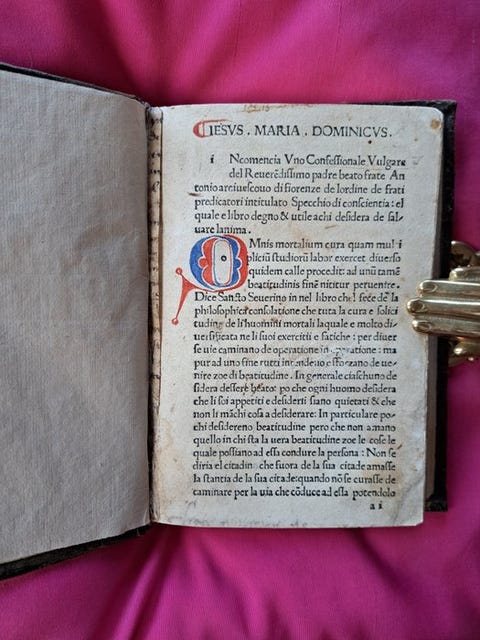 IESVS . MARIA . DOMINICVS.
i Ncomencia Vno Confessionale Vulgare
del Reuerēdissimo padre beato frate An
tonio arciuescouo di fiorenze de lordine de frati
predicatori intitulato Specchio di conscientia: el
quale e libro degno & utile achi desidera de sal-
uare lanima.
OMnis mortalium cura quam multi
pliciū studiorū labor exercet diuerso
quidem calle procedit: ad unū tamē
beatitudinis finē nititur peruenire.
Dice Sancto Seuerino in nel libro che fece de la
philosophica consolatione che tuta la cura e solici
tudine de li huomini mortali laquale e molto di-
uersificata ne li suoi exercitii e fatiche: per diuer
se uie caminano de operatione in operatione: ma
pur ad uno fine tutti intendeno e sforzano de ue-
nire zoe di beatitudine. In generale ciaschuno de
sidera dessere beato: po che ogni huomo desidera
che li soi appetiti e desiderii siano quietati & che
non li māchi cosa a desiderare: In particulare po-
chi desidereno beatitudine pero che non amano
quello in chi sta la uera beatitudine zoe le cose le
quale possiano ad essa condure la persona: Non se
diria el citadino che fuora de la sua citade amasse
la stantia de la sua citade: quando nō se curasse de
caminare per la uia che cōduce ad essa potendolo
a i